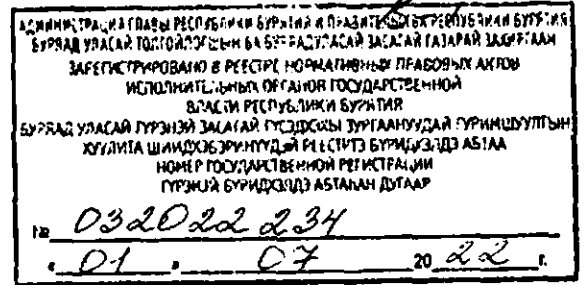 АДМИНИСТРАЦИЯ ГЛАВЫ РЕСПУБЛИКИ БУРЯТИЯ И ПРАВИТЕЛЬСТВА РЕСПУБЛИКИ БУРЯТИЯ
БУРЯАД УЛАСАЙ ТОЛГОЙЛОГШЫН БА БУРЯАД УЛАСАЙ ЗАСАГАЙ ГАЗАРАЙ ЗАХИРГААН
ЗАРЕГИСТРИРОВАНО В РЕЕСТРЕ НОРМАТИВНЫХ ПРАВОВЫХ АКТОВ
ИСПОЛНИТЕЛЬНЫХ ОРГАНОВ ГОСУДАРСТВЕННОЙ
ВЛАСТИ РЕСПУБЛИКИ БУРЯТИЯ
БУРЯАД УЛАСАЙ ГҮРЭНЭЙ ЗАСАГАЙ ГҮЙСЭДХЭХЫ ЗУРГААНУУДАЙ ГУРИМШУУЛГЫН
ХУУЛИТА ШИИДХЭБЭРИНҮҮДЭЙ РЕЕСТРТЭ БҮРИДХЭЛДЭ АБТАА
НОМЕР ГОСУДАРСТВЕННОЙ РЕГИСТРАЦИИ
ГҮРЭНЭЙ БҮРИДХЭЛДЭ АБТАҺАН ДУГААР
№ 032022234
« 01 » 07 20 22 г.